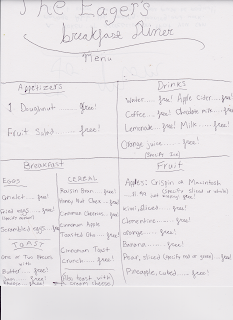 The Eager's
breakfast Diner
Menu
Appetizers
1 Doughnut ..... free!
Fruit Salad ..... free!
Drinks
Water .... free! Apple Cider .... free!
Coffee .... free! Chocolate milk ... free!
Lemonade... free! Milk ..... free!
Orange juice ..... free!
Breakfast
EGGS
Omelet .... free!
Fried eggs ..... free!
Scrambled eggs ... free!
TOAST
One or Two Pieces
with
Butter .... free!
Jam .... free!
CEREAL
Raisin Bran .. free!
Honey Nut Chex .. free!
Cinnamon Cheerios .. free!
Cinnamon Apple
Toasted Os .... free!
Cinnamon Toast
Crunch .... free!
Also toast with
cream cheese
Fruit
Apples: Crispin or Macintosh
(Specify sliced or whole)
Kiwi, sliced ..... free!
Clementine .... free!
orange .... free!
Banana .... free!
Pear, sliced (specify red or green) ... free!
Pineapple, cubed .... free!